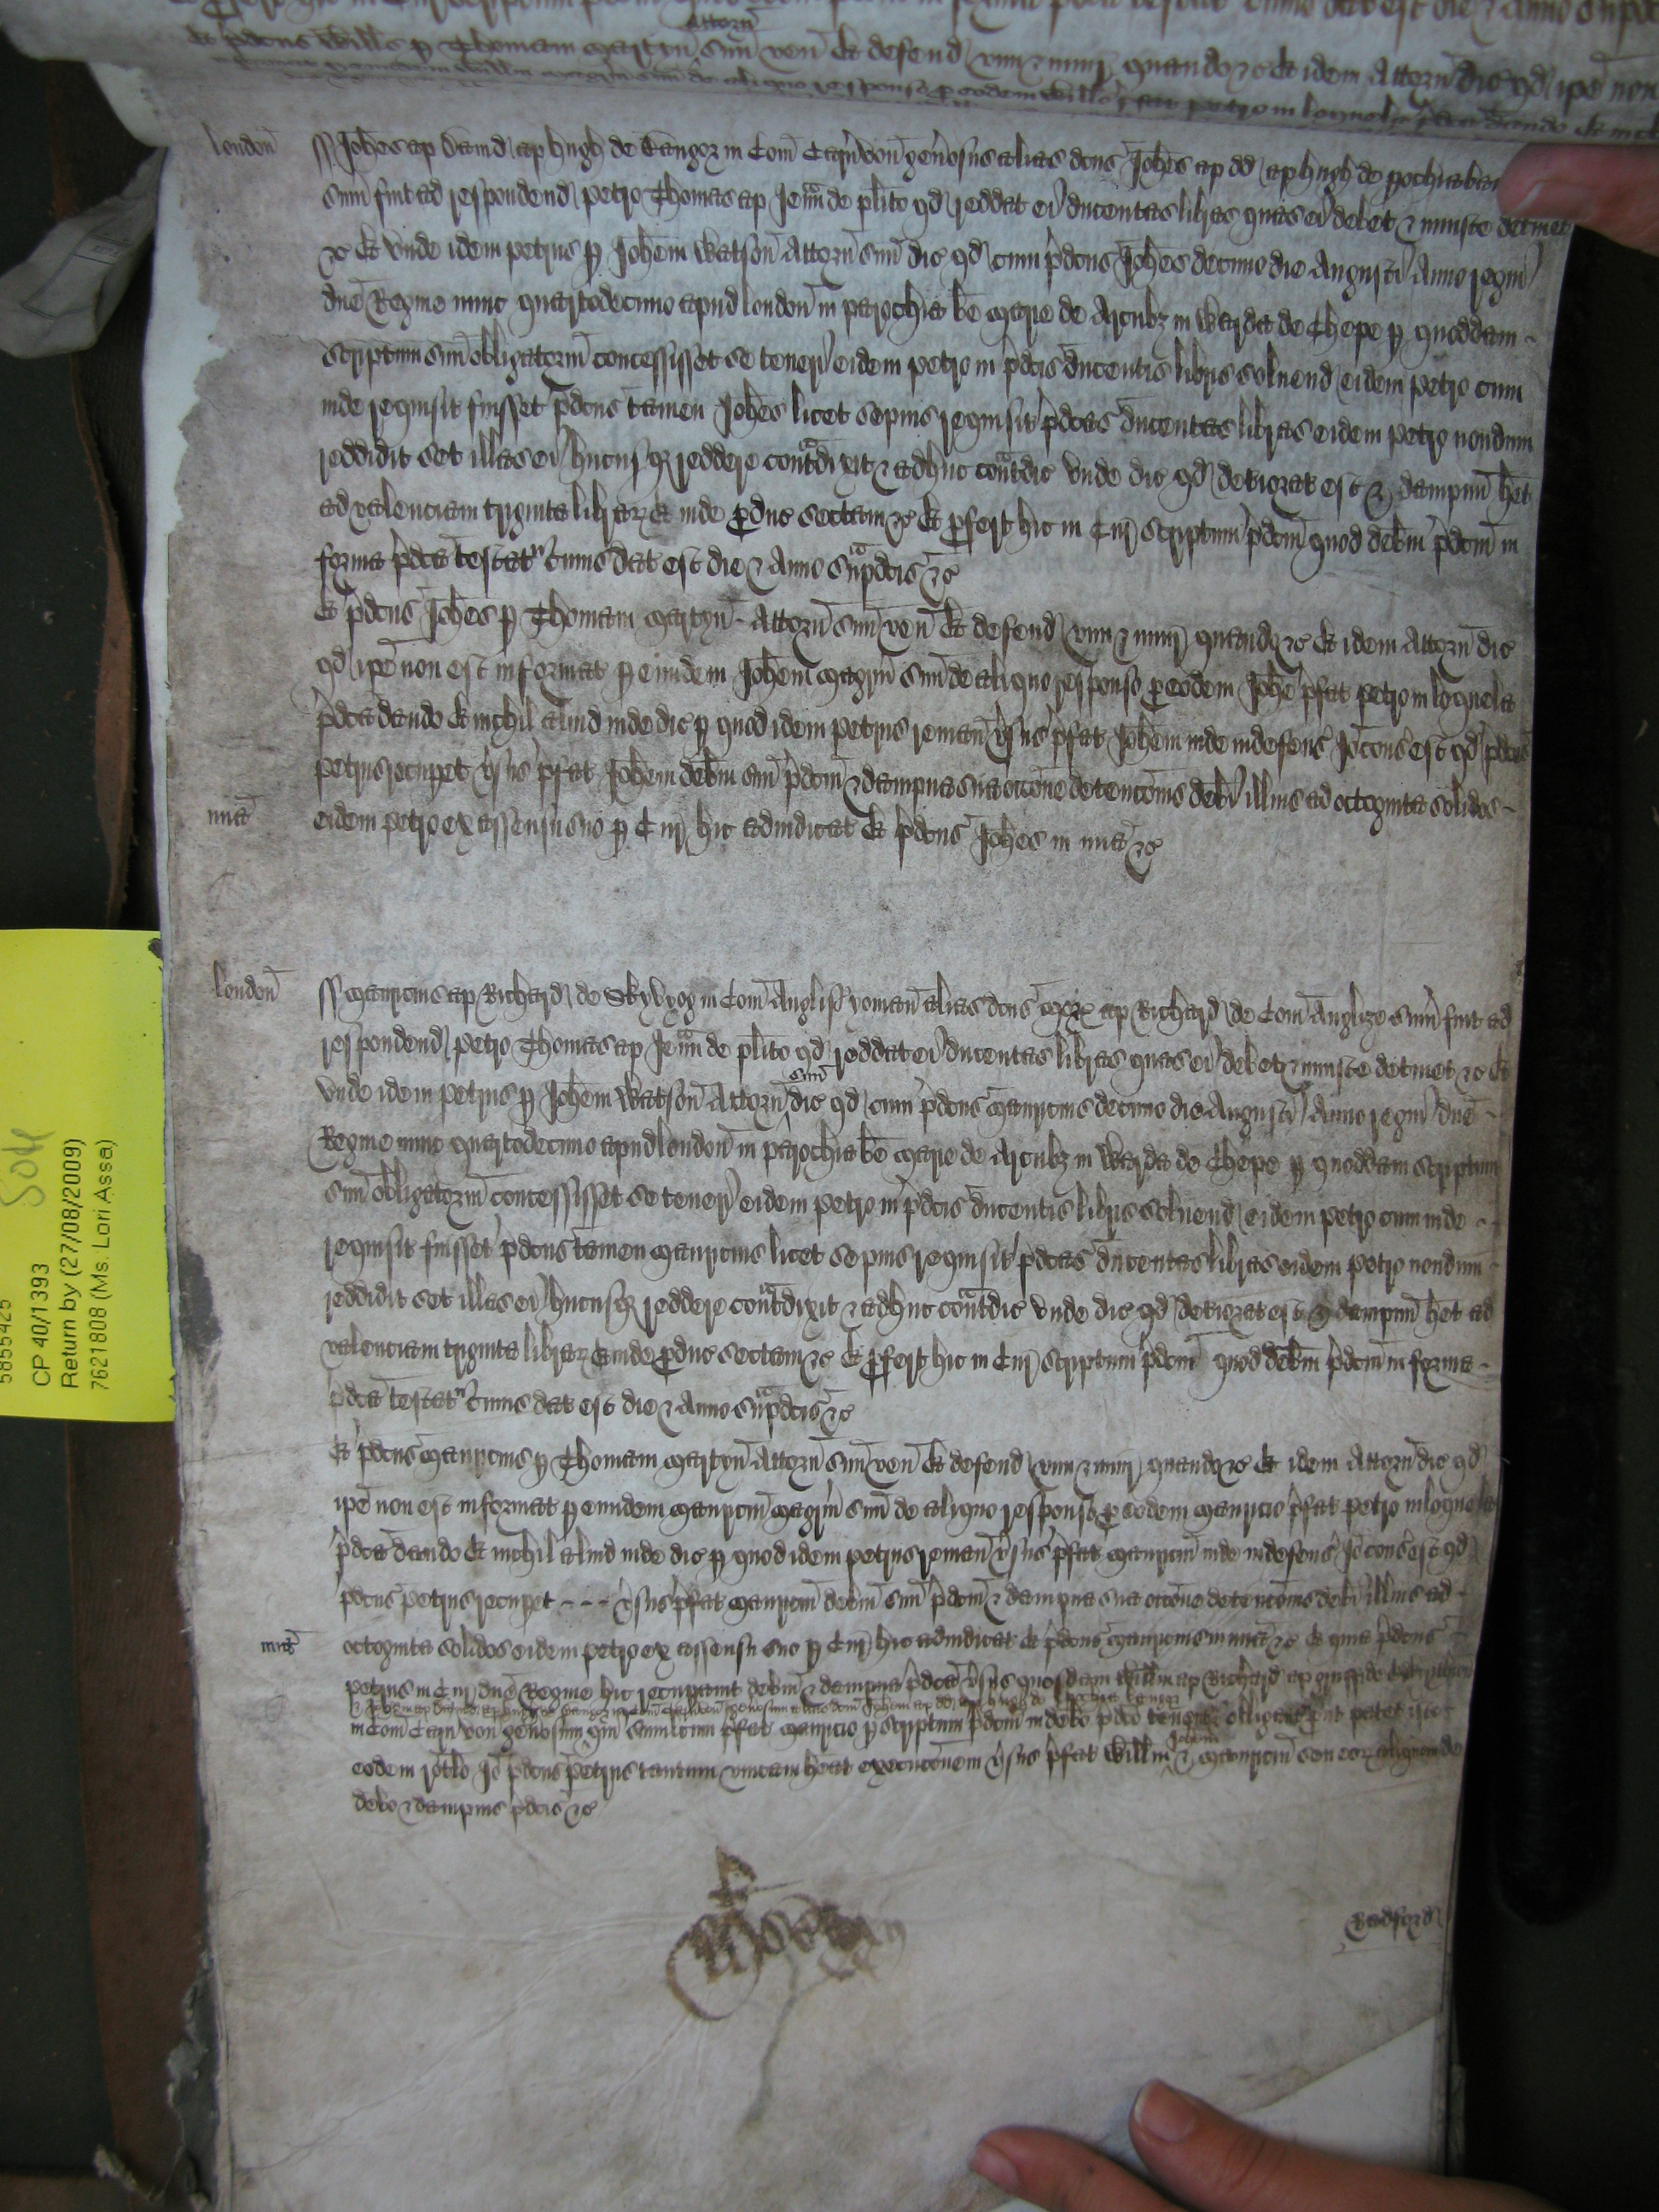 Attorñ
Et p̃dcus Willს p Thomam Martyn suu ven̄ Et defend vim & iniur̃ quando &c Et idem Attorñ dic qd ip̄e non
london̄
ss Joh̄es ap David ap hugh de Bangor in Com̄ Carñvon gen̄osus alias dcus Joh̄es ap dd ap hugh de
sum̄ fuit ad respondend petro Thomas ap Jeuan de pl̄ito qd reddat ei ducentas libras quas ei debet & iniuste detinet
&c Et unde idem petrus p Joh̄em Watson̄ Attorñ suu dic qd cum p̃dcus Joh̄es decimo die Augusti Anno regni
dn̄e Regine nunc quartodecimo apud london̄ in parochia b̄e Marie de Arcubz in Warda de Chepe p quoddam
scriptum suu obligatoriu concessisset se teneri eidem petro in p̃dcis ducentis libris solvend eidem petro cum
inde requisit fuisset p̃dcus tamen Joh̄es licet sepius requisit p̃dcas ducentas libras eidem petro nondum
reddidit set illas ei hucusqz reddere contradixit & adhuc contradic Unde dic qd deteriorat est & dampnu het
ad valenciam triginta librar̃ Et inde p̱duc sectam &c Et p̱fert hic in Cur̃ scriptum p̃dcm quod debm̄ p̃dcm in
forma p̃dca testat̃ Cuius dat est die & Anno sup̃dcis &c
Et p̃dcus Joh̄es p Thomam Martyn Attorñ suu ven̄ Et defend vim & iniur̃ quando &c Et idem Attorñ dic
qd ip̄e non est informat p eundem Joh̄em magrm suu de aliquo responso p̱ eodem Joh̄e p̃fat petro in loquela
p̃dca dando Et nichil aliud inde dic p quod idem petrus reman̄ v̄sus p̃fat Joh̄em inde indefens̃ Jo cons̃ est qd p̃dcus
petrus recupet v̄sus p̃fat Joh̄em debm̄ suu p̃dcm & dampna sua occone detenconis debi illius ad octoginta solidos
mia
eidem petro ex assensu suo p Cur̃ hic adiudicat Et p̃dcus Joh̄es in mia &c
london̄
ss Mauricius ap Richard de Skyvyog in Com̄ Anglis̃ yoman alias dcus ap Richard de Com̄ Anglize sum̄ fuit ad
respondend petro Thomas ap Jeuan de pl̄ito qd reddat ei ducentas libras quas ei debet & iniuste detinet &c Et
unde idem petrus p Joh̄em Watson̄ Attorñ suu dic qd cum p̃dcus Mauricius decimo die Augusti Anno regni dn̄e
Regine nunc quartodecimo apud london̄ in parochia b̄e Marie de Arcubz in Warda de Chepe p quoddam scriptum
suu obligatoriu concessisset se teneri eidem petro in p̃dcis ducentis libris solvend eidem petro cum inde
requisit fuisset p̃dcus tamen Mauricius licet sepius requisit p̃dcas ducentas libras eidem petro nondum
reddidit set illas ei hucusqz reddere contradixit & adhuc contradic Unde dic qd deteriorat est & dampnu het ad
valenciam triginta librar̃ Et inde p̱duc sectam &c Et p̱fert hic in Cur̃ scriptum p̃dcm quod debm̄ p̃dcm in forma
p̃dca testat̃ Cuius dat est die & Anno sup̃dcis &c
Et p̃dcus Mauricius p Thomam Martyn Attorñ suu ven̄ Et defend vim & iniur̃ quando &c Et idem Attorñ dic qd
ip̄e non est informat p eundem Mauriciu magrm suu de aliquo responso p̱ eodem Mauricio p̃fat petro in loquela
p̃dca dando Et nichil aliud inde dic p quod idem petrus reman̄ v̄sus p̃fat Mauriciu inde indefens̃ Jo cons̃ est qd
p̃dcus petrus recupet - - - v̄sus p̃fat Mauriciu debm̄ suu p̃dcm & dampna sua occone detenconis debi illius ad
mia
octoginta solidos eidem petro ex assensu suo p Cur̃ hic adiudicat Et p̃dcus Mauricius in mia &c Et quia p̃dcus
petrus in Cur̃ dn̄e Regine hic recupavit debm̄ & dampna p̃dca v̄sus quosdam Willm̄ ap Richard ap
& Joh̄em ap David ap hugh de Bangor in Com̄ Carñvon gen̄osum alias dcm Joh̄em ap dd ap hugh de
in Com̄ Carñvon gen̄osum qui simul cum p̃fat Mauricio p scriptum p̃dcm in debo p̃dco obligat̃ put patet
eodem rotlo Jo p̃dcus petrus tantum unicam heat execuconem v̄sus p̃fat Willm̄ Joh̄em & Mauriciu seu eor̃ aliquem de
debo & dampnis p̃dcis &c
Bradford
5855425
CP 40/1393
Return by (27/08/2009)
7621808 (Ms. Lori Assa)